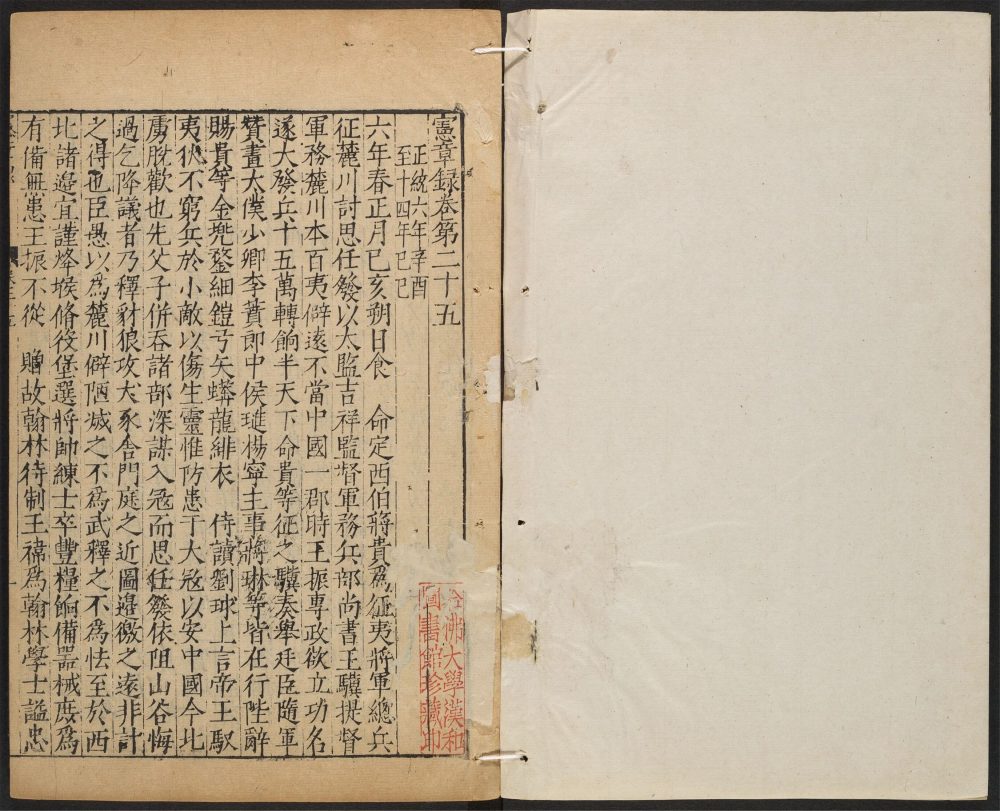 憲章録卷第二十五
正統六年辛酉
至十四年己巳
六年春正月己亥朔日食　命定西伯蔣貴爲征夷將軍總兵
征麓川討思任發以太監吉祥監督軍務兵部尚書王驥提督
軍務麓川本百夷僻遠不當中國一郡時王振專政欲立功名
遂大發兵十五萬轉餉半天下命貴等征之驥奏舉廷臣隨軍
賛畫大僕少卿李蕡郎中侯璡楊寧主事蔣琳等皆在行陛辭
賜貴等金兠鍪細鎧弓矢蟒龍緋衣　侍讀劉球上言帝王馭
夷狄不窮兵於小敵以傷生靈惟防患于大冦以安中國今北
虜脫歡也先父子併吞諸部深謀入冦而思任發依阻山谷悔
過乞降議者乃釋豺狼攻犬豕舍門庭之近圖邊徼之遠非計
之得也臣愚以爲麓川僻陋滅之不爲武釋之不爲怯至於西
北諸邉宜謹烽堠脩俊堡選將帥練士卒豐糧餉備噐械庶爲
有備無患王振不從　贈故翰林待制王禕爲翰林學士謚忠
哈佛大學漢和
圖書館珍藏印